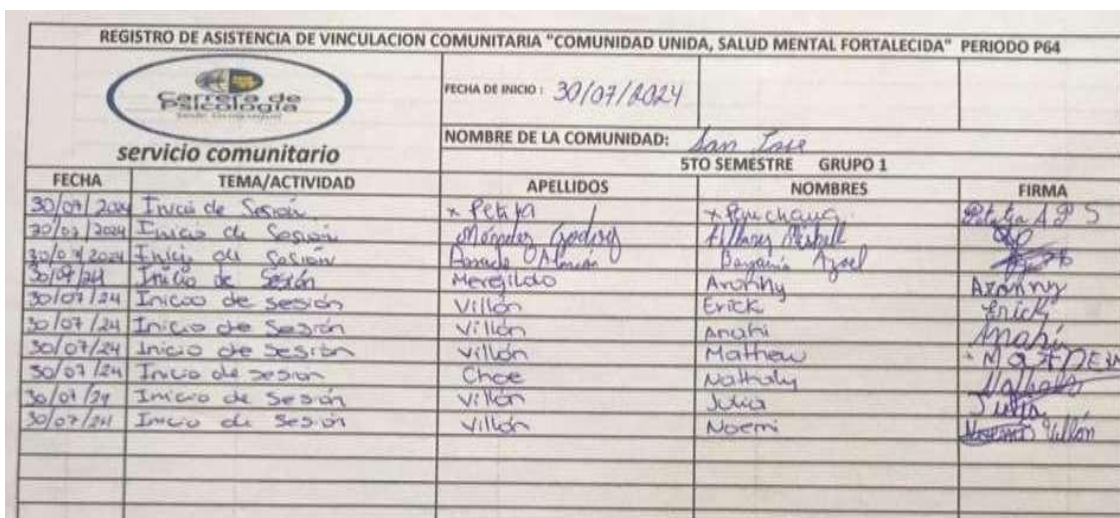 REGISTRO DE ASISTENCIA DE VINCULACION COMUNITARIA "COMUNIDAD UNIDA, SALUD MENTAL FORTALECIDA" PERIODO P64
Carrera de
Psicología
servicio comunitario
FECHA DE INICIO : 30/07/2024
NOMBRE DE LA COMUNIDAD: San Jose
5TO SEMESTRE GRUPO 1
FECHA TEMA/ACTIVIDAD APELLIDOS NOMBRES FIRMA
30/07/2024 Inicio de Sesión
30/07/2024 Inicio de Sesión Godoy
30/07/2024 Inicio de Sesión
30/07/24 Inicio de Sesión Meregildo Aronny Aronny
30/07/24 Inicio de sesión Villón Erick Erick
30/07/24 Inicio de Sesión Villón Anahi Anahi
30/07/24 Inicio de Sesión Villón Mathew
30/07/24 Inicio de sesion Choe Nathaly
30/07/24 Inicio de Sesión Villón Julia Julia
30/07/24 Inicio de Sesión Villón Noemi Villón